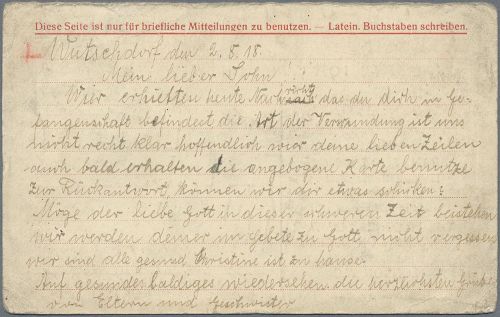 Diese Seite ist nur für briefliche Mitteilungen zu benutzen. — Latein. Buchstaben schreiben.
Wutschdorf den 2.8.18.
Mein lieber Sohn
Wier erhielten heute Nachricht das du dich in Ge-
fangenschaft befindest die Art der Verwundung ist uns
nicht recht klar hoffendlich wier deine lieben Zeilen
auch bald erhalten die angebogene Karte benutze
zur Rückantwort, können wir dir etwas schicken?
Möge der liebe Gott in dieser schweren Zeit beistehen
wir werden deiner im Gebete zu Gott nicht vergessen
wir sind alle gesund Christine ist zu hause.
Auf gesundes baldiges wiedersehen die herzlichsten Grüße
von Eltern und Geschwister